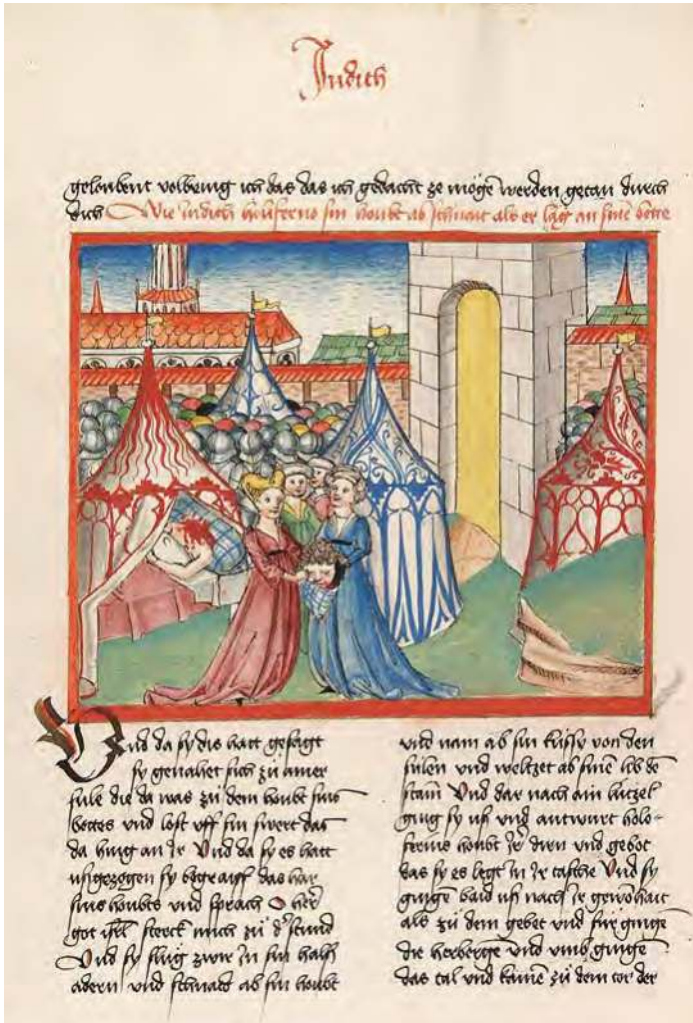 Judith
geloubent volbring ich das das ich gedacht ze möge werden getan durch
dich Wie iudith holiferno sin houbt ab schnait als er lag an sinē bette
Vnd da sy dis hatt gesagt
sy genahet sich zů ainer
sule die da was zů dem houbt sins
bettes vnd lost vff sin swert das
da hing an ir Vnd da sy es hatt
vsgezogen sy begraiff das har
sins houbts vnd sprach O her
got isrl sterck mich zů dˢ stund
Vnd sy slůg zwir in sin halß
adern vnd schnatt ab sin houbt
vnd nam ab sin küssy von den
sulen vnd weltzet ab sinē lib dē
stam Vnd dar nach ain lützel
ging sy vß vnd antwurt holo-
ferens houbt ir dirn vnd gebot
das sy es legt in ir tasche Vnd sy
gingē baid vß nach ir gewōhait
als zů dem gebet vnd für gingē
die herbergē vnd vmb gingē
das tal vnd kamē zů dem tor der